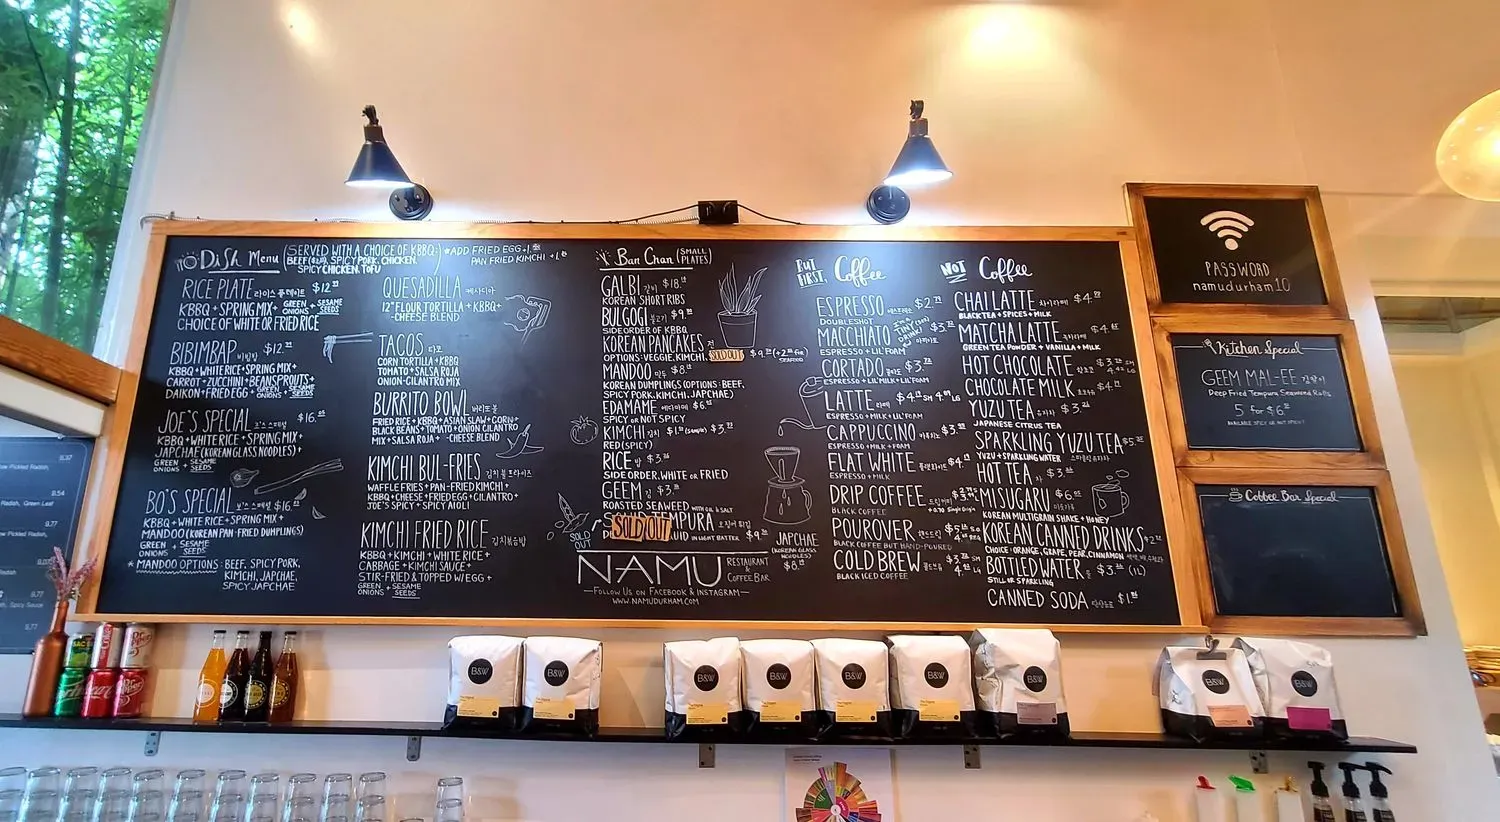 DiSh Menu
(SERVED WITH A CHOICE OF KBBQ:)
BEEF(소고기), SPICY PORK, CHICKEN,
SPICY CHICKEN, TOFU
*ADD FRIED EGG +1.
PAN FRIED KIMCHI +1.
RICE PLATE 라이스 플레이트 $12.
KBBQ + SPRING MIX + GREEN ONIONS + SESAME SEEDS
CHOICE OF WHITE OR FRIED RICE
BIBIMBAP 비빔밥 $12.
KBBQ + WHITE RICE + SPRING MIX +
CARROT + ZUCCHINI + BEANSPROUTS +
DAIKON + FRIED EGG + GREEN ONIONS + SESAME SEEDS
JOE'S SPECIAL 조's 스페셜 $16.
KBBQ + WHITE RICE + SPRING MIX +
JAPCHAE (KOREAN GLASS NOODLES) +
GREEN ONIONS + SESAME SEEDS
BO'S SPECIAL 보's 스페셜 $16.
KBBQ + WHITE RICE + SPRING MIX +
MANDOO (KOREAN PAN FRIED DUMPLINGS)
GREEN ONIONS + SESAME SEEDS
* MANDOO OPTIONS: BEEF, SPICY PORK,
KIMCHI, JAPCHAE,
SPICY JAPCHAE
QUESADILLA 케사디아
12" FLOUR TORTILLA + KBBQ +
-CHEESE BLEND
TACOS 타코
CORN TORTILLA + KBBQ
TOMATO + SALSA ROJA
ONION-CILANTRO MIX
BURRITO BOWL 버리또 볼
FRIED RICE + KBBQ + ASIAN SLAW + CORN +
BLACK BEANS + TOMATO + ONION CILANTRO
MIX + SALSA ROJA + -CHEESE BLEND
KIMCHI BUL-FRIES 김치 불 프라이즈
WAFFLE FRIES + PAN-FRIED KIMCHI +
KBBQ + CHEESE + FRIED EGG + CILANTRO +
JOE'S SPICY + SPICY AIOLI
KIMCHI FRIED RICE 김치볶음밥
KBBQ + KIMCHI + WHITE RICE +
CABBAGE + KIMCHI SAUCE +
STIR-FRIED & TOPPED W/EGG +
GREEN ONIONS + SESAME SEEDS
Ban Chan (SMALL PLATES)
GALBI 갈비 $18.
KOREAN SHORT RIBS
BULGOGI 불고기 $9.
SIDE ORDER OF KBBQ
KOREAN PANCAKES 전
OPTIONS: VEGGIE, KIMCHI, SOLD OUT $9. (+2. FOR SEAFOOD)
MANDOO 만두 $8.
KOREAN DUMPLINGS (OPTIONS: BEEF,
SPICY PORK, KIMCHI, JAPCHAE)
EDAMAME 에다마메 $6.
SPICY OR NOT SPICY
KIMCHI 김치 $1. (Sample) $3.
RED (SPICY)
RICE 밥 $3.
SIDE ORDER. WHITE OR FRIED
GEEM 김 $3.
ROASTED SEAWEED WITH OIL & SALT
SOLD OUT TEMPURA 오징어 튀김
IN LIGHT BATTER $9.
SOLD OUT
JAPCHAE
(KOREAN GLASS NOODLES)
$8.
NAMU RESTAURANT & COFFEE BAR
-FOLLOW US ON FACEBOOK & INSTAGRAM-
WWW.NAMUDURHAM.COM
BUT FIRST, Coffee
ESPRESSO 에스프레소 $2.
DOUBLESHOT
MACCHIATO $3.
ESPRESSO + LIL' FOAM
CORTADO $3.
ESPRESSO + LIL' MILK + LIL' FOAM
LATTE 라떼 $4. SM LG
ESPRESSO + MILK + LIL' FOAM
CAPPUCCINO 카푸치노 $3.
ESPRESSO + MILK + FOAM
FLAT WHITE 플랫화이트 $4.
ESPRESSO + MILK
DRIP COFFEE 드립커피
BLACK COFFEE +0.70 Single Origin
POUROVER 핸드드립
BLACK COFFEE BUT HAND-POURED
COLD BREW 콜드브루
BLACK ICED COFFEE
NOT Coffee
CHAI LATTE 차이라떼 $4.
BLACK TEA + SPICES + MILK
MATCHA LATTE $4.
GREEN TEA POWDER + VANILLA + MILK
HOT CHOCOLATE
CHOCOLATE MILK $4.
YUZU TEA 유자차 $3.
JAPANESE CITRUS TEA
SPARKLING YUZU TEA $5.
YUZU + SPARKLING WATER
HOT TEA 차 $3.
MISUGARU $6.
KOREAN MULTIGRAIN SHAKE + HONEY
KOREAN CANNED DRINKS $2.
CHOICE: ORANGE, GRAPE, PEAR, CINNAMON
BOTTLED WATER $3. (1L)
STILL OR SPARKLING
CANNED SODA $1.
PASSWORD
namudurham10
Kitchen Special
GEEM MAL-EE 김말이
Deep Fried Tempura Seaweed Rolls
5 for $6
AVAILABLE SPICY OR NOT SPICY!
Coffee Bar Special
9.37
8.54
Radish, Green Leaf
9.77
9.77
Spicy Sauce
9.77
B&W
B&W
B&W
B&W
B&W
B&W
B&W
B&W
B&W